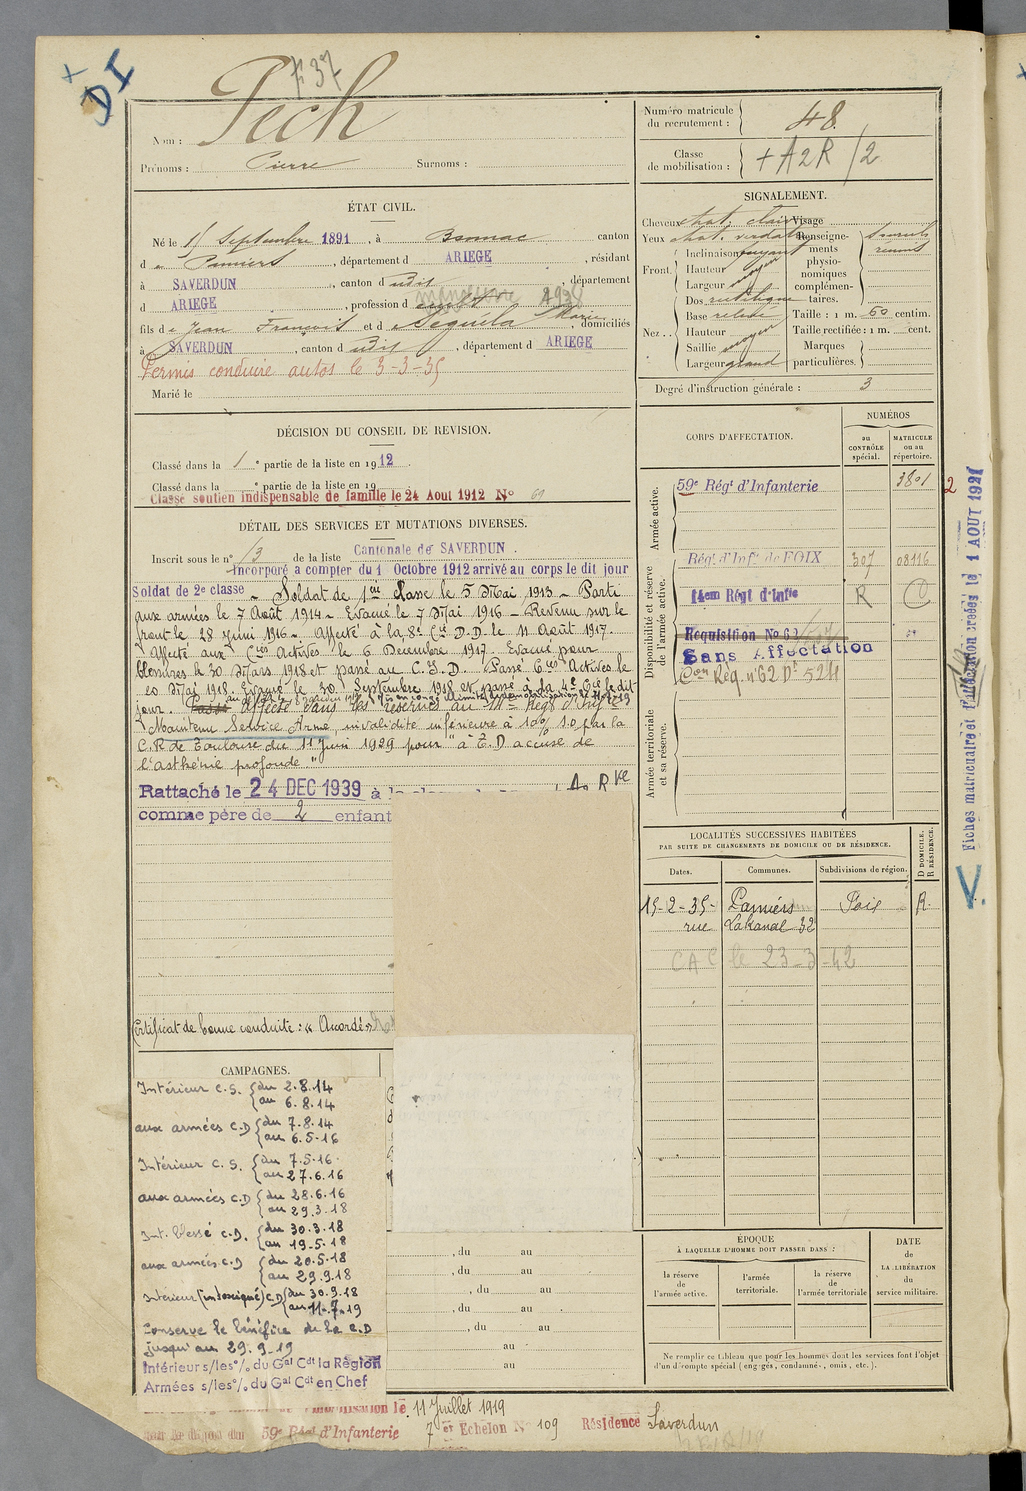 DI
F 37
Nom : Pech
Prénoms : Pierre Surnoms :
Numéro matricule du recrutement : 48
Classe de mobilisation : + A2R /2
ÉTAT CIVIL.
Né le Septembre 1891, à Bonnac canton
d e Pamiers, département d ARIEGE, résidant
à SAVERDUN, canton d udit, département
d ARIEGE, profession d cult
manoeuvre 1938
fils d e Jean François et d e Séguéla Marie, domiciliés
à SAVERDUN, canton d udit, département d ARIEGE
Permis conduire autos le 3-3-35
Marié le
SIGNALEMENT.
Cheveux chat. clair Visage
Yeux chat. verdatre
Front. Inclinaison fuyant
Hauteur moyen
Largeur
Nez Dos rectiligne
Base relevé
Hauteur
Saillie moyen
Largeur grand
Renseignements physionomiques complémentaires.
Taille : 1 m. 60 centim.
Taille rectifiée : 1 m. cent.
Marques particulières.
Degré d'instruction générale : 3
DÉCISION DU CONSEIL DE REVISION.
Classé dans la 1 e partie de la liste en 1912.
Classé dans la e partie de la liste en 19
Classé soutien indispensable de famille le 24 Aout 1912 N°
DÉTAIL DES SERVICES ET MUTATIONS DIVERSES.
Inscrit sous le n° 13 de la liste Cantonale de SAVERDUN.
Incorporé a compter du 1 Octobre 1912 arrivé au corps le dit jour
Soldat de 2e classe - Soldat de 1ere classe le 5 Mai 1913 - Parti
aux armées le 7 Août 1914 - Evacué le 7 Mai 1916 - Revenu sur le
front le 28 juin 1916 - Affecté à la 8e Cie D.D. le 11 Août 1917.
Affecté aux Cies Actives le 6 Decembre 1917. Evacué pour
blessures le 30 Mars 1918 et passé au C.I.D. Passé Cies Actives le
20 Mai 1918. Evacué le 30 Septembre 1918 et passé à la 4e Cie le dit
jour. affecté dans les réserves au 14e Regt d'Infie
Maintenu Service Armé, invalidité inférieure à 10% 10 par la
C.R de Toulouse du 11 Juin 1929 pour "à E.D accuse de
l'asthénie profonde"
Rattaché le 24 DEC 1939 à
comme père de 2 enfant
Certificat de bonne conduite : « Accordé »
CORPS D'AFFECTATION.
NUMÉROS
au CONTRÔLE spécial.
MATRICULE ou au répertoire.
Armée active.
59e Régt d'Infanterie 3801
2
Disponibilité et réserve de l'armée active.
Régt d'Infie de FOIX 307 08116
14em Régt d'Infie R
Requisition No 62
Sans Affectation
Con Réq. n°62 Dt 524
Armée territoriale et sa réserve.
Fiches matriculaire et d'affectation créées le 1 AOUT 1921
V.
LOCALITÉS SUCCESSIVES HABITÉES
PAR SUITE DE CHANGEMENTS DE DOMICILE OU DE RÉSIDENCE.
Dates. Communes. Subdivisions de région. D DOMICILE. R RÉSIDENCE.
15-2-35- Pamiers Foix R.
rue Lakanal 32
CAC le 23-3-42
CAMPAGNES.
Intérieur C.S. du 2.8.14
au 6.8.14
aux armées C.D du 7.8.14
au 6.5.16
Intérieur C.S. du 7.5.16
au 27.6.16
aux armées C.D du 28.6.16
au 29.3.18
Int. blessé C.D. du 30.3.18
au 19.5.18
aux armées C.D du 20.5.18
au 29.9.18
Intérieur C.D du 30.9.18
au 11.7.19
Conserve le bénéfice de la C.D
jusqu'au 29.9.19
Intérieurs s/les °/. du Gal Cdt la Région
Armées s/les °/. du Gal Cdt en Chef
, du au
, du au
, du au
, du au
, du au
au
au
ÉPOQUE
À LAQUELLE L'HOMME DOIT PASSER DANS :
la réserve de l'armée active.
l'armée territoriale.
la réserve de l'armée territoriale
DATE de LA LIBÉRATION du service militaire.
Ne remplir ce tableau que pour les hommes dont les services font l'objet
d'un décompte spécial (engagés, condamnés, omis, etc.).
le 11 Juillet 1919
59e Régt d'Infanterie 7 er Echelon N° 109 Résidence Saverdun